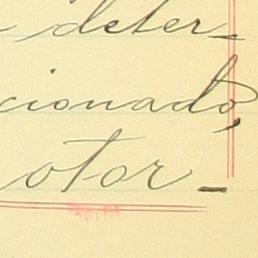 deter-
cionado,
otor-